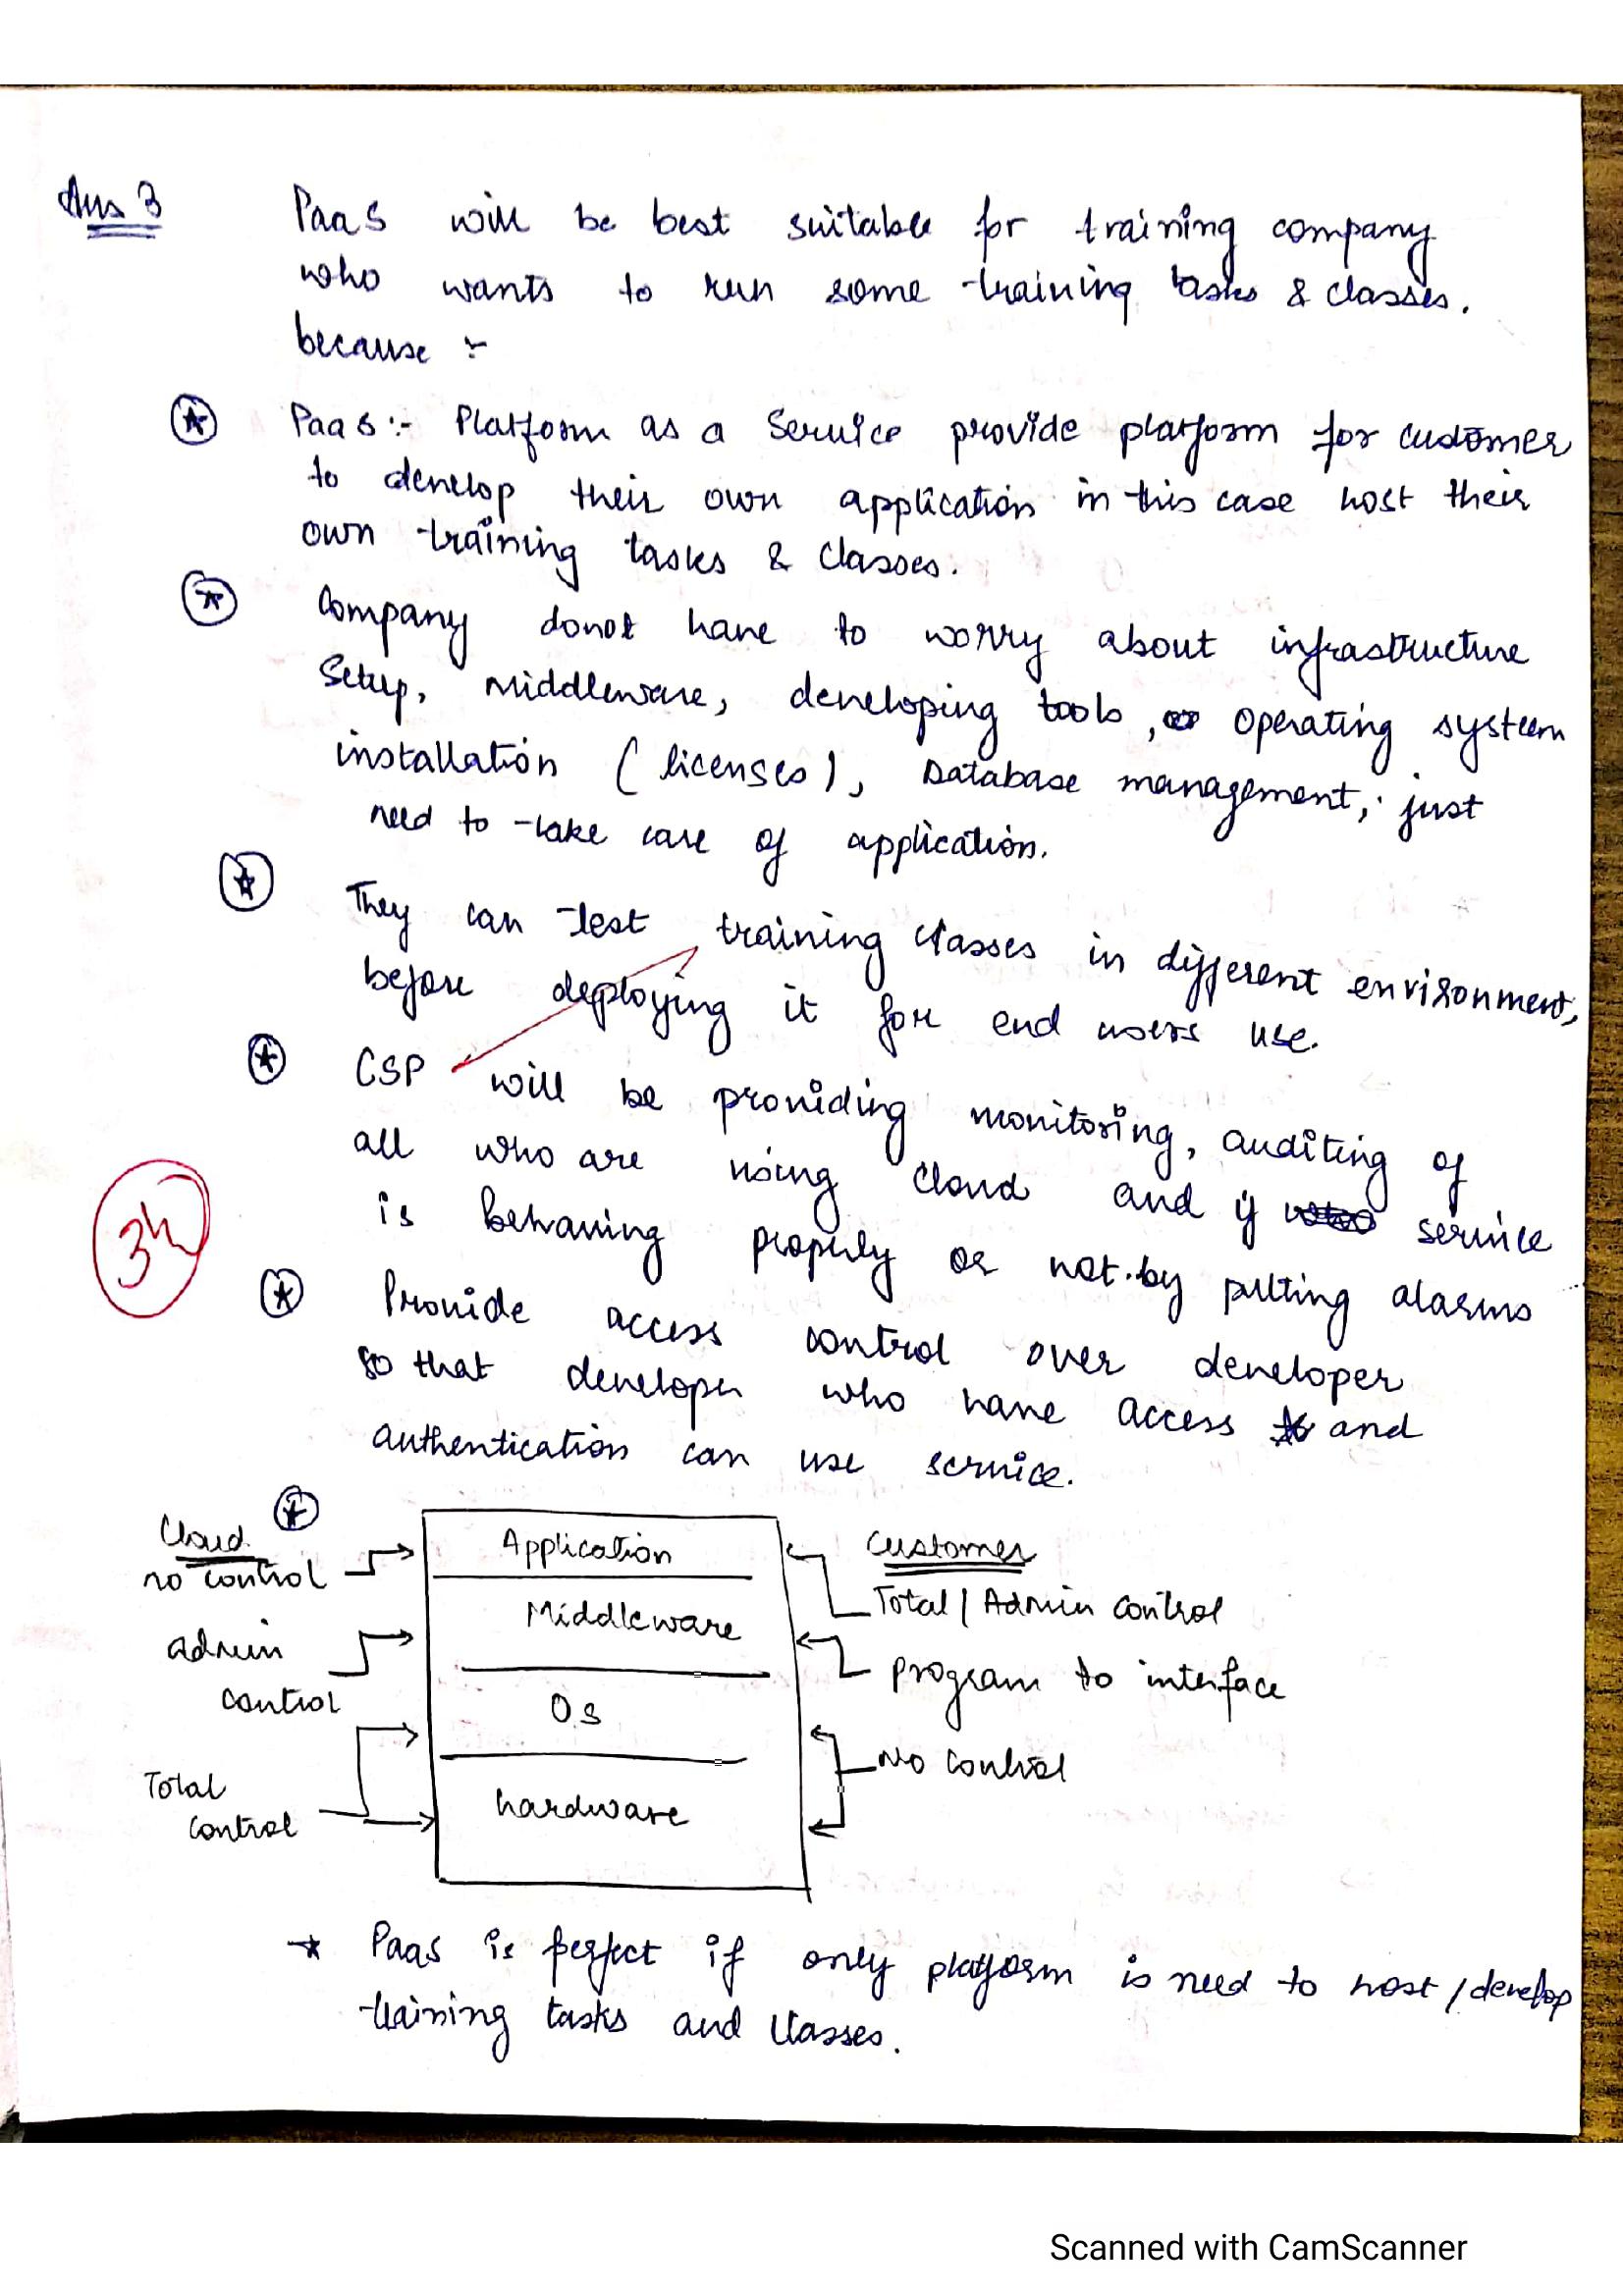 Ans 3
PaaS will be best suitable for training company
who wants to run some training tasks & classes.
because :-
PaaS :- Platform as a Service provide platform for customer
to develop their own application in this case host their
own training tasks & classes.
Company donot have to worry about infrastructure
Setup, Middleware, developing tools, operating system
installation (licenses), Database management, just
need to take care of application.
They can test training classes in different environment,
before deploying it for end users use.
CSP will be providing monitoring, auditing of
all who are using cloud and if service
is behaving properly or not by putting alarms
Provide access control over developer
so that developer who have access and
authentication can use service.
Cloud
no control
Application
Customer
Total / Admin control
admin
control
Middleware
program to interface
OS
No control
Total
control
hardware
PaaS is perfect if only platform is need to host / develop
training tasks and classes.
Scanned with CamScanner